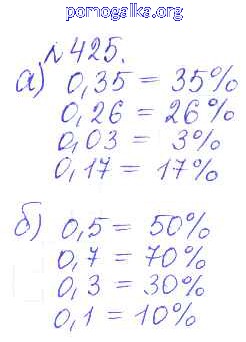 pomogalka.org
№425.
а) 0,35 = 35%
0,26 = 26%
0,03 = 3%
0,17 = 17%
б) 0,5 = 50%
0,7 = 70%
0,3 = 30%
0,1 = 10%